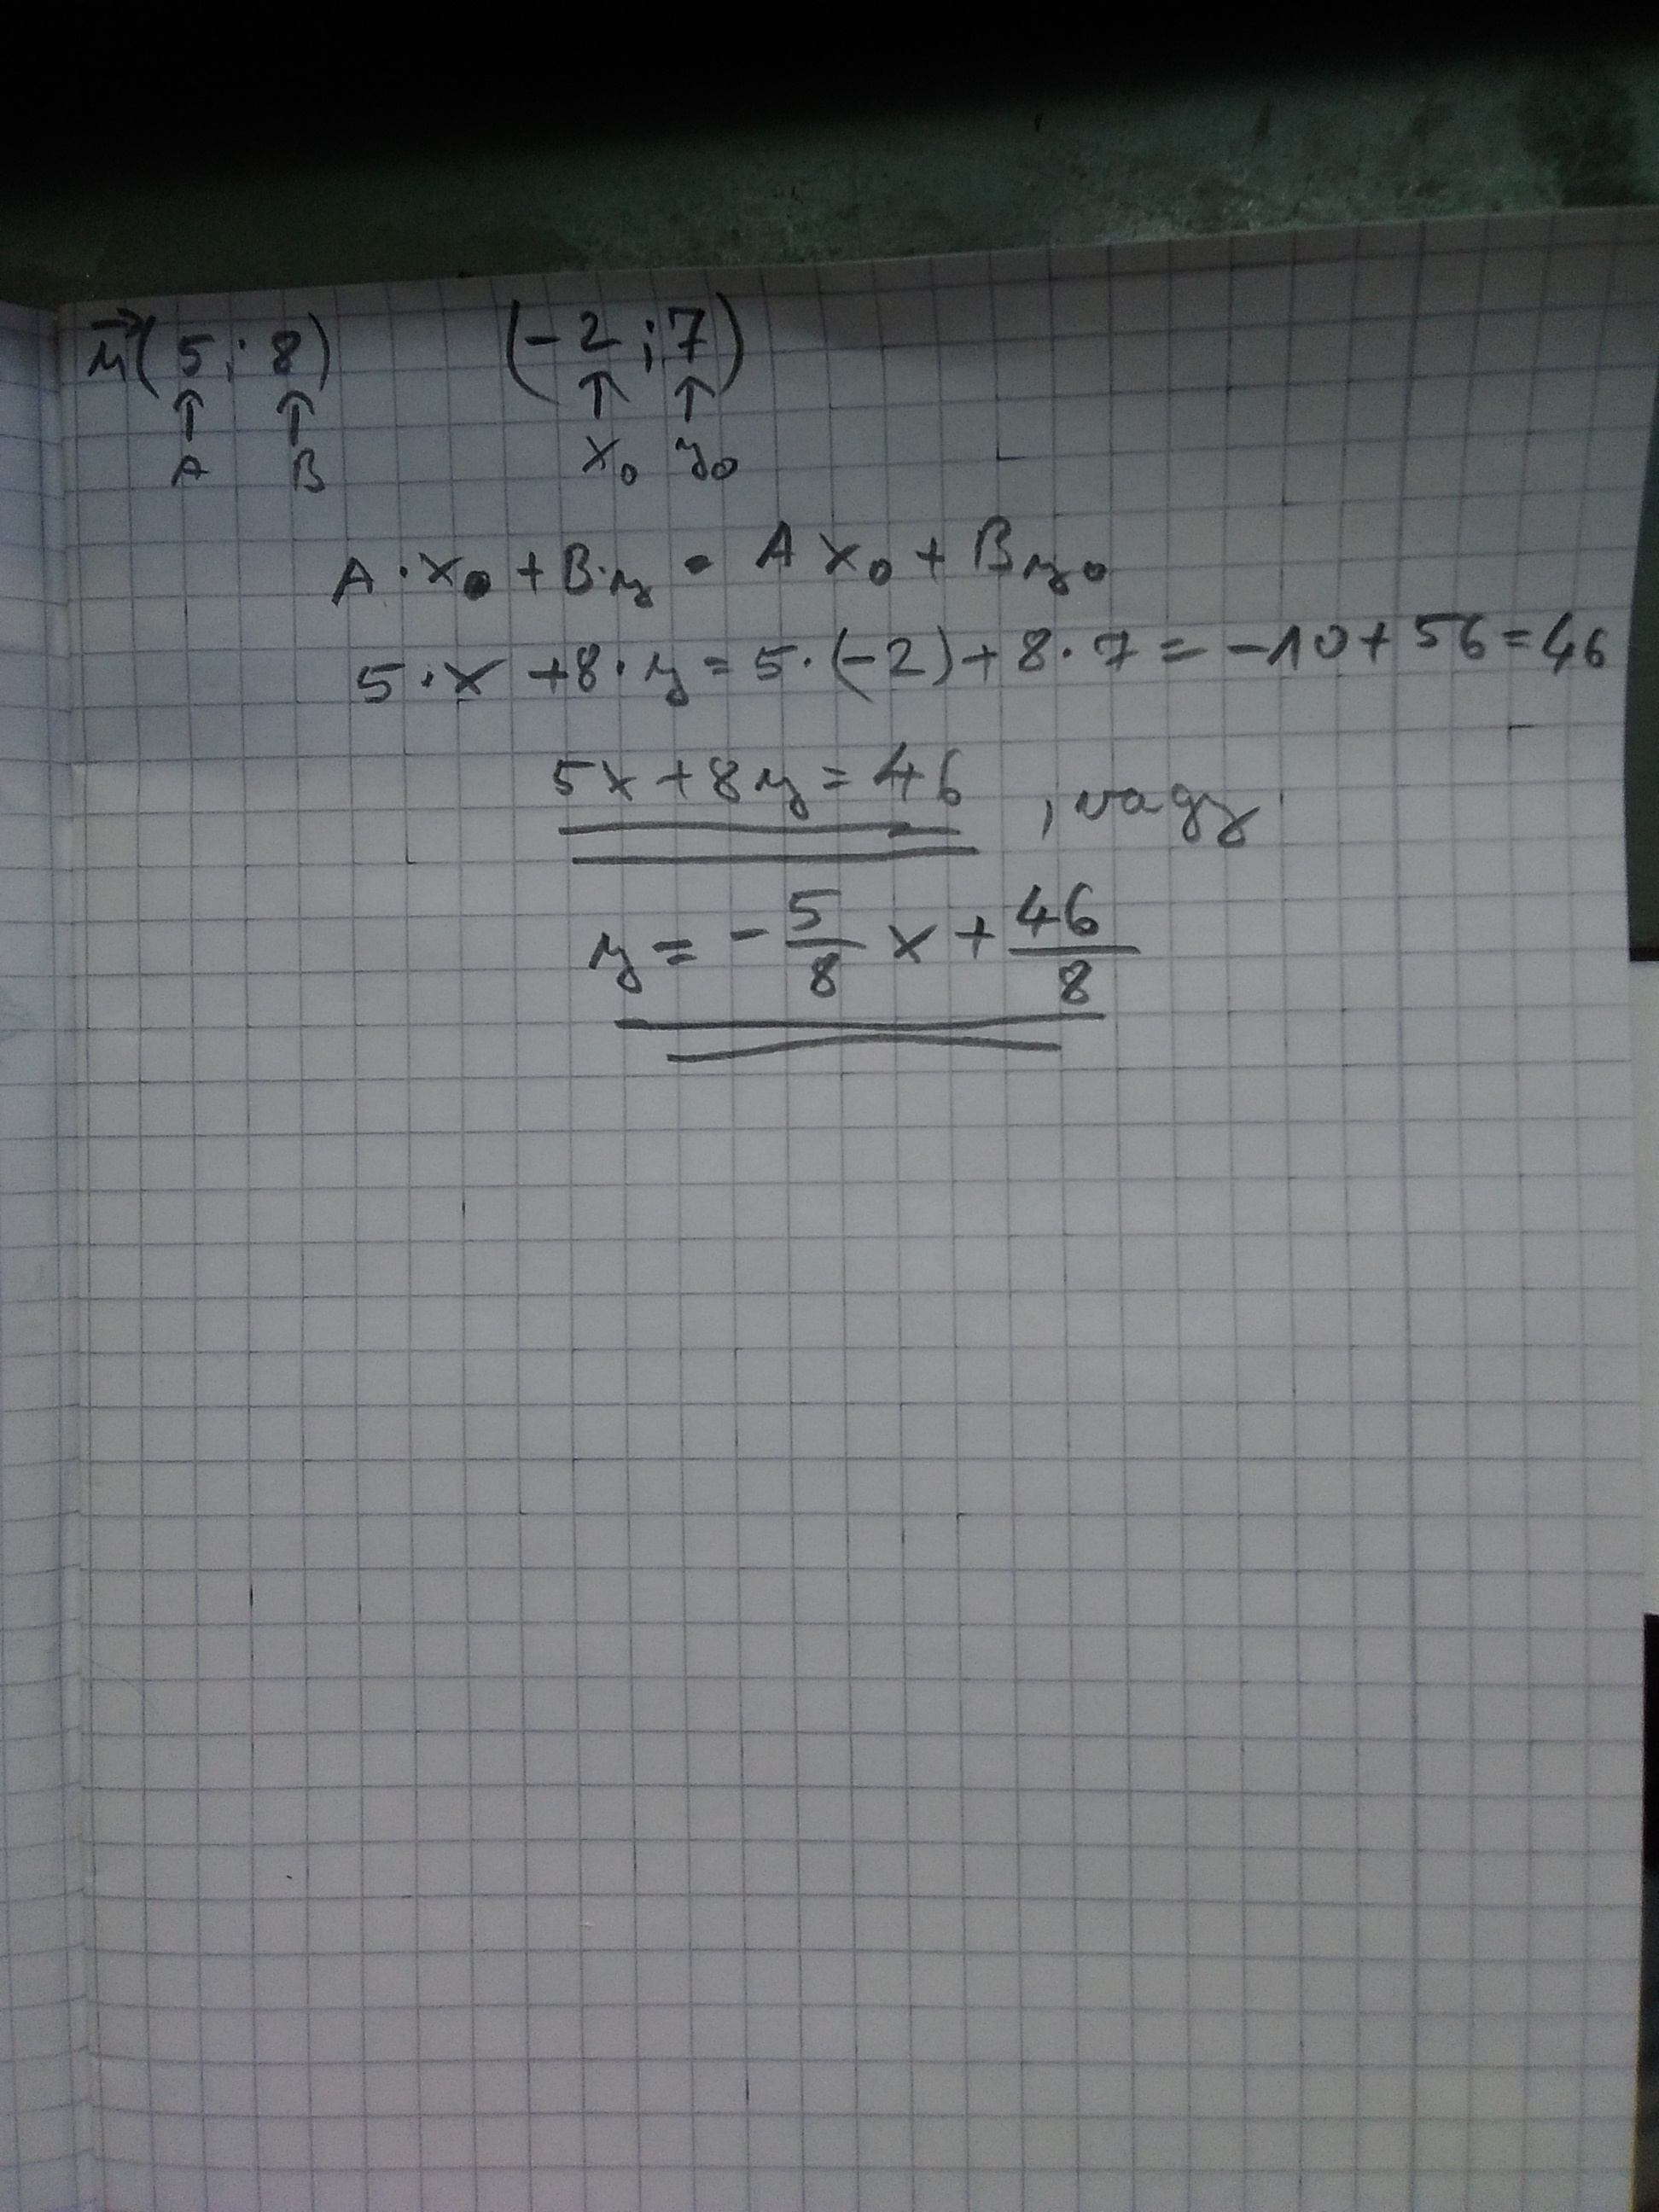 n⃗(5;8) (-2;7)
↑ ↑ ↑ ↑
A B x₀ y₀
A·x₀+B·y = Ax₀+By₀
5·x+8·y=5·(-2)+8·7=-10+56=46
5x+8y=46 , vagy
y=-5/8x+46/8